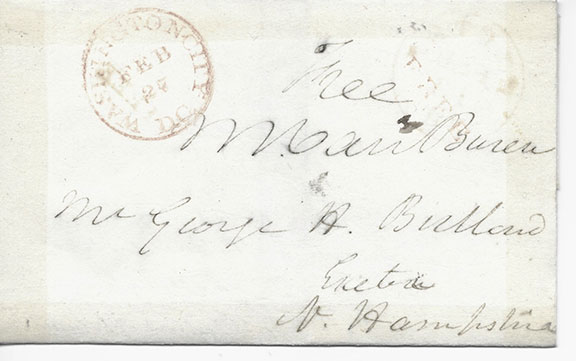 WASHINGTON CITY D.C.
FEB
27
FREE
Free
M. Van Buren
Mr George H. Bulland
Exeter
N. Hampshire